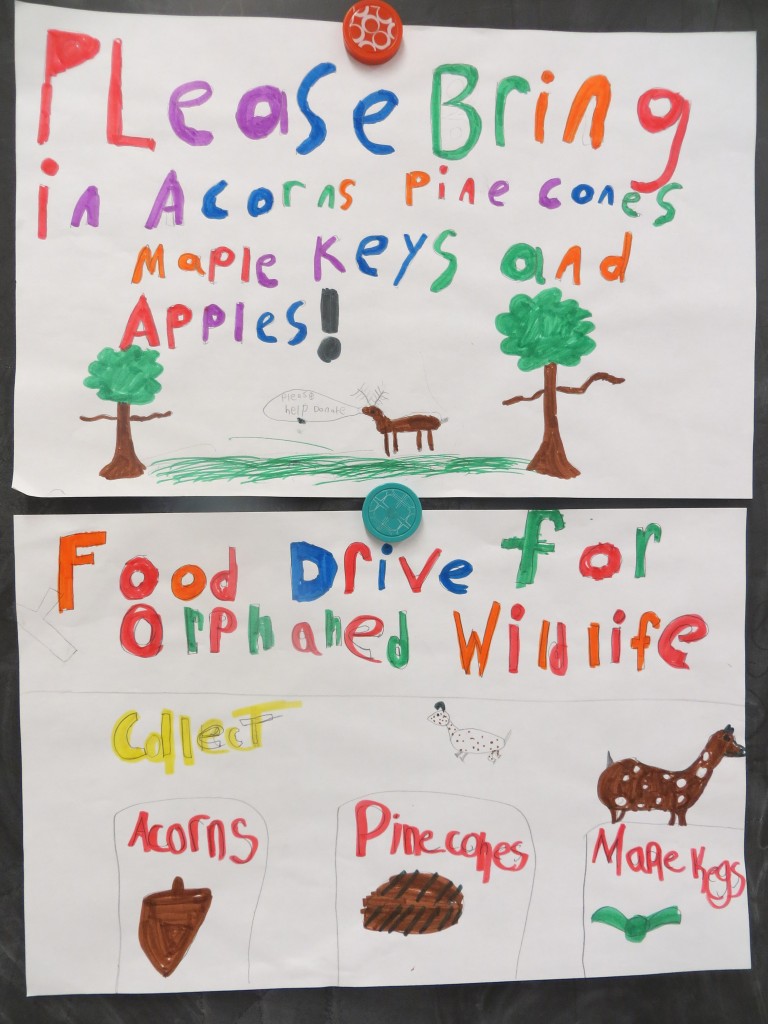 PLease Bring
in Acorns Pine cones
Maple Keys and
Apples!
Please
help Donate
Food Drive for
Orphaned Wildlife
Collect
Acorns
Pinecones
Maple Keys